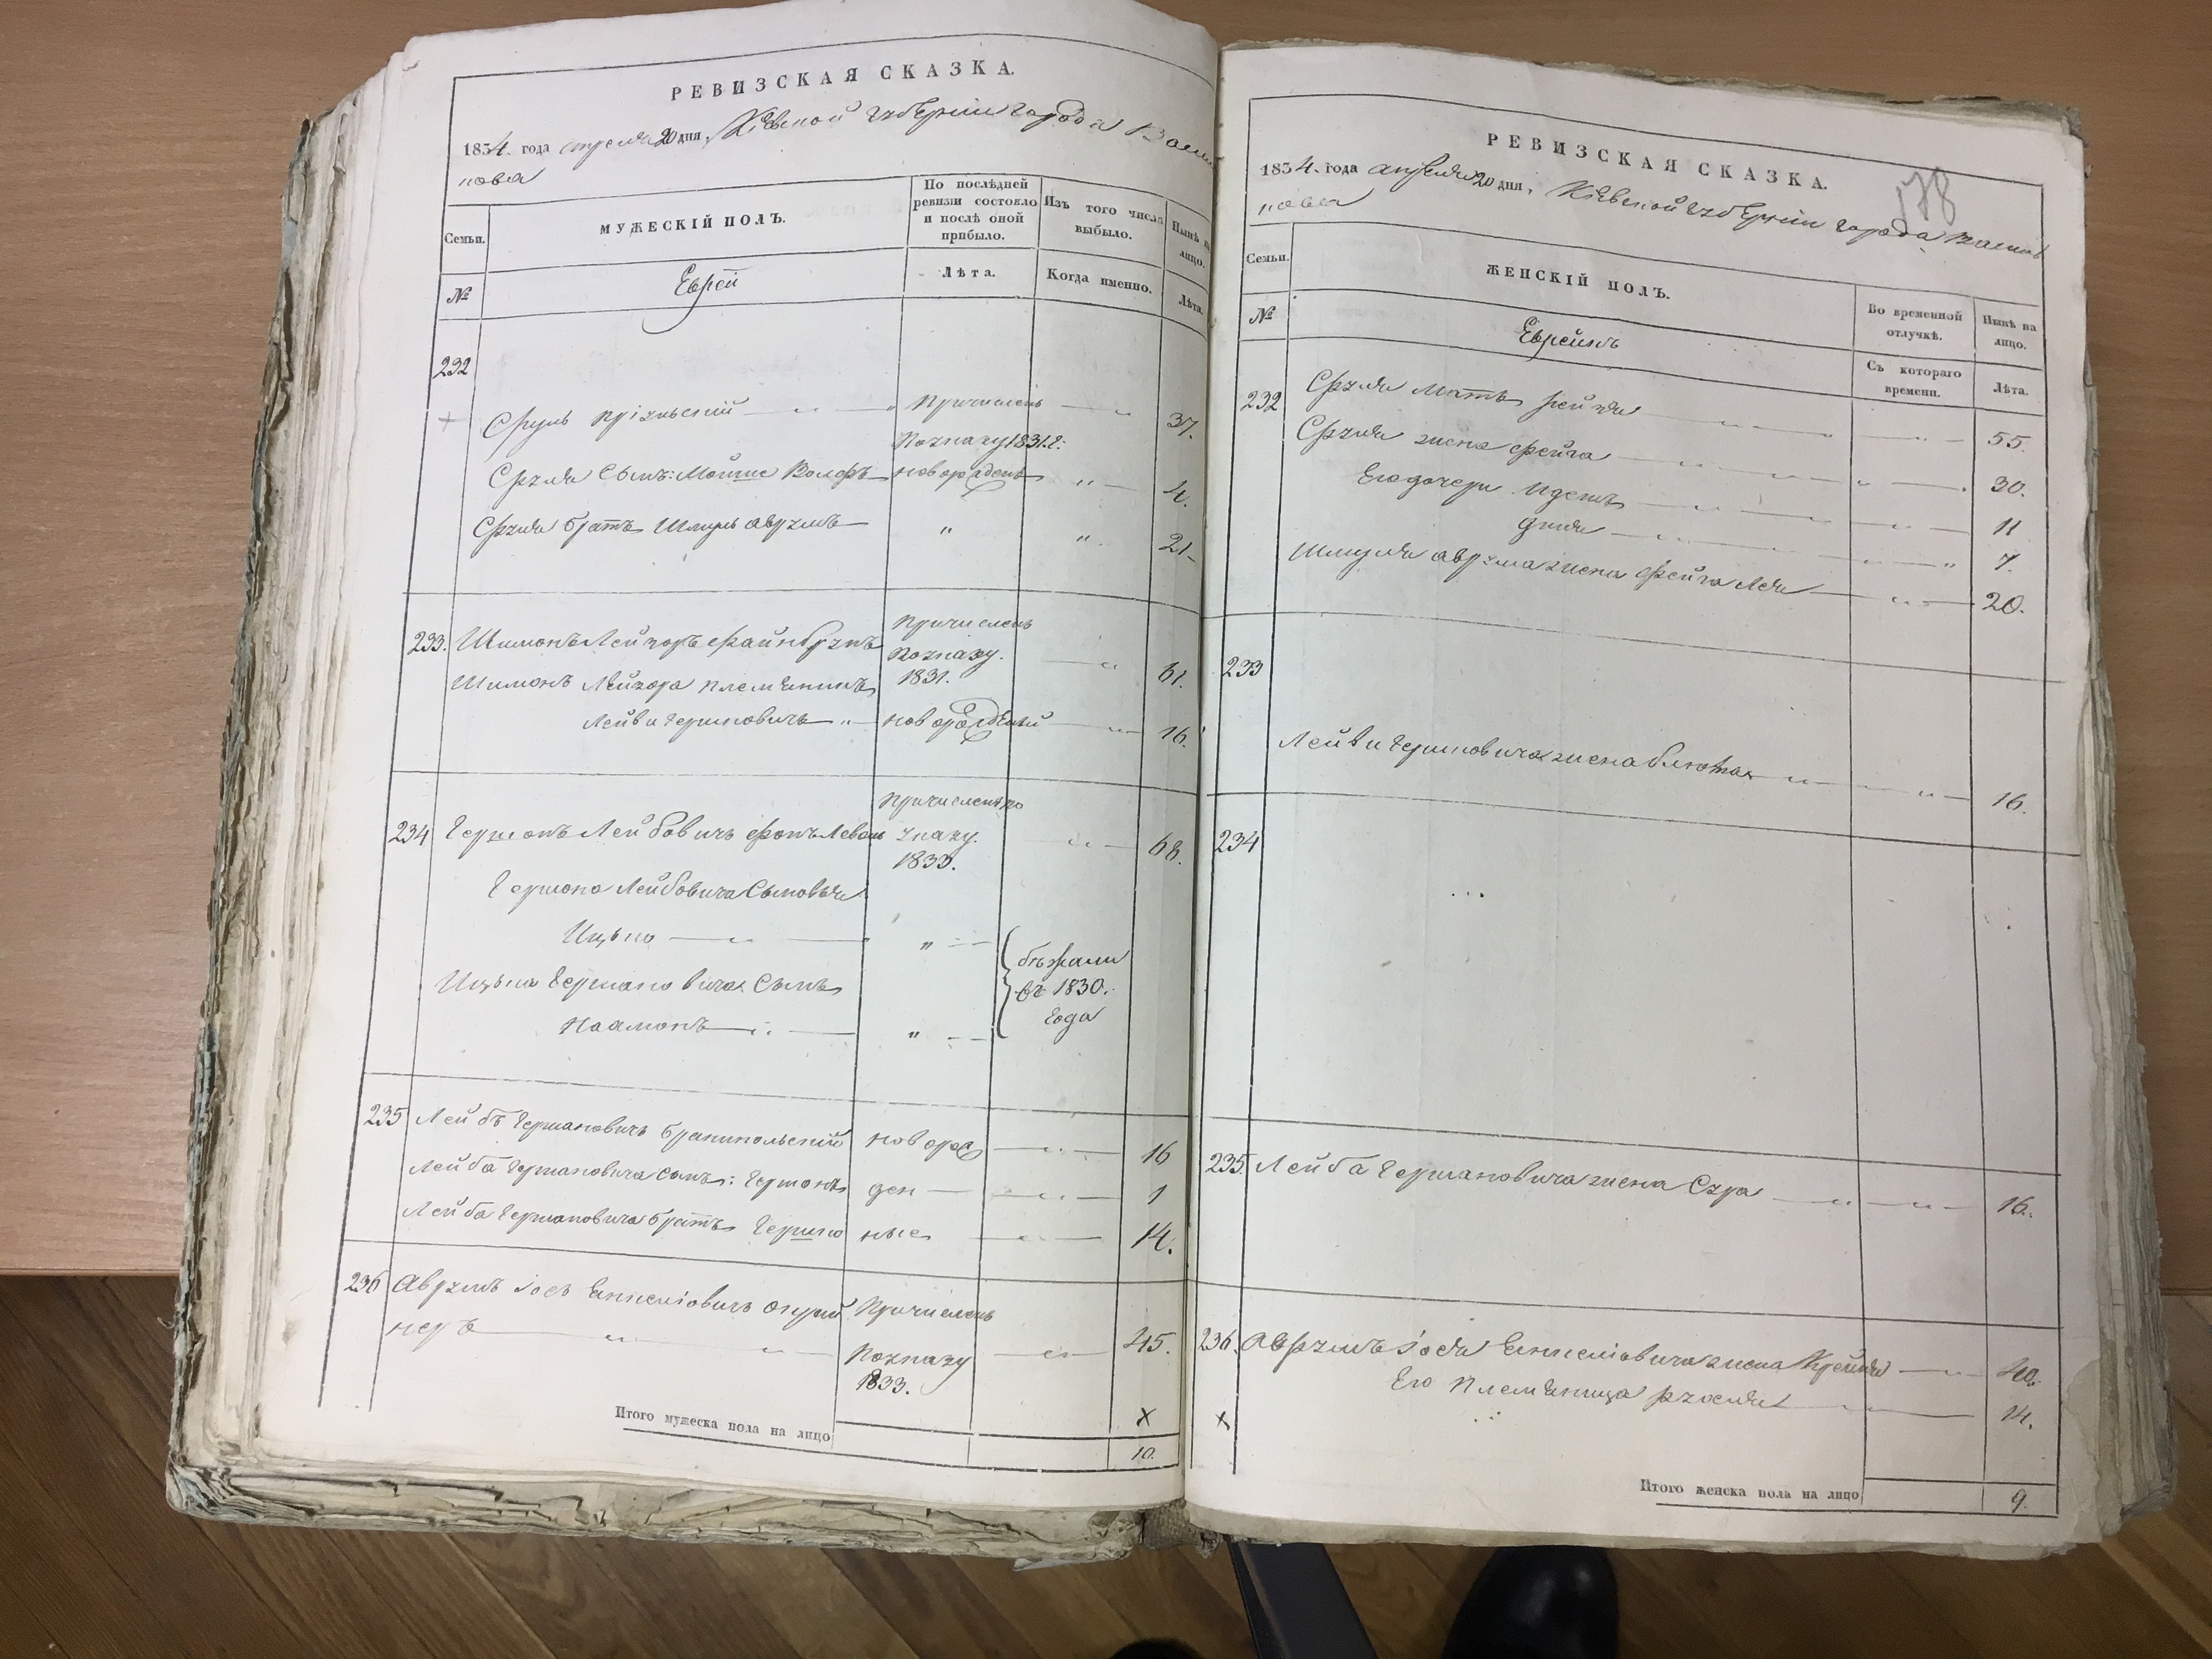 РЕВИЗСКАЯ СКАЗКА.
1834. года апреля 20 дня, Кіевской губерніи города Василь
кова
Семьи.
МУЖЕСКІЙ ПОЛЪ.
По послѣдней ревизіи состояло и послѣ оной прибыло.
Изъ того числа выбыло.
Нынѣ на лицо.
№
Еврей
Лѣта.
Когда именно.
Лѣта.
232
Сруль — " — Причисленъ — " 37.
По указу 1831. г:
Сруля Сынъ: Мойше Вольфъ новорожденъ " — 4.
Сруля братъ Шмуль Аврумъ " " 21
233. Шимонъ Лейзоръ Файнбрунъ Причисленъ
По указу.
1831. — " 61.
Шимонъ Лейзора племенникъ
Лейви Гершковичъ " новорожденый — " 16.
234 Гершонъ Лейбовичъ Причисленъ по
указу.
1833. " 68.
Гершона Лейбовича Сыновья
Ицько — " — "
Ицька Гершановича Сынъ
" —
бѣжали
въ 1830.
года
235 Лейбъ Гершановичъ новорож — " — 16
Лейба Гершановича сынъ: Гершонъ ден — " — 1
Лейба Гершановича братъ Гершко ные — " — 14.
236 Аврумъ Іось
неръ — " — " Причисленъ
По указу
1833. — " — 45.
X
Итого мужеска пола на лицо 10.
РЕВИЗСКАЯ СКАЗКА.
178
1834. года апреля 20 дня, Кіевской губерніи города Василь
кова
Семьи.
ЖЕНСКІЙ ПОЛЪ.
Во временной отлучкѣ.
Нынѣ на лицо.
№
Еврейкъ
Съ котораго времени.
Лѣта.
232 Сруля мать Рейзя — " — 55.
Сруля жена Фейга — " — 30.
Его дочери — " — 11
— " — " 7.
Шмуля Аврума жена Фейга Лея — " — 20.
233
Лейви Гершковича жена Блюма — " — " 16.
234
235. Лейба Гершановича жена Сура — " — " — 16.
236. Аврумъ Іося жена Крейня — " — 40.
Его племеница — 14.
X
Итого женска пола на лицо 9.